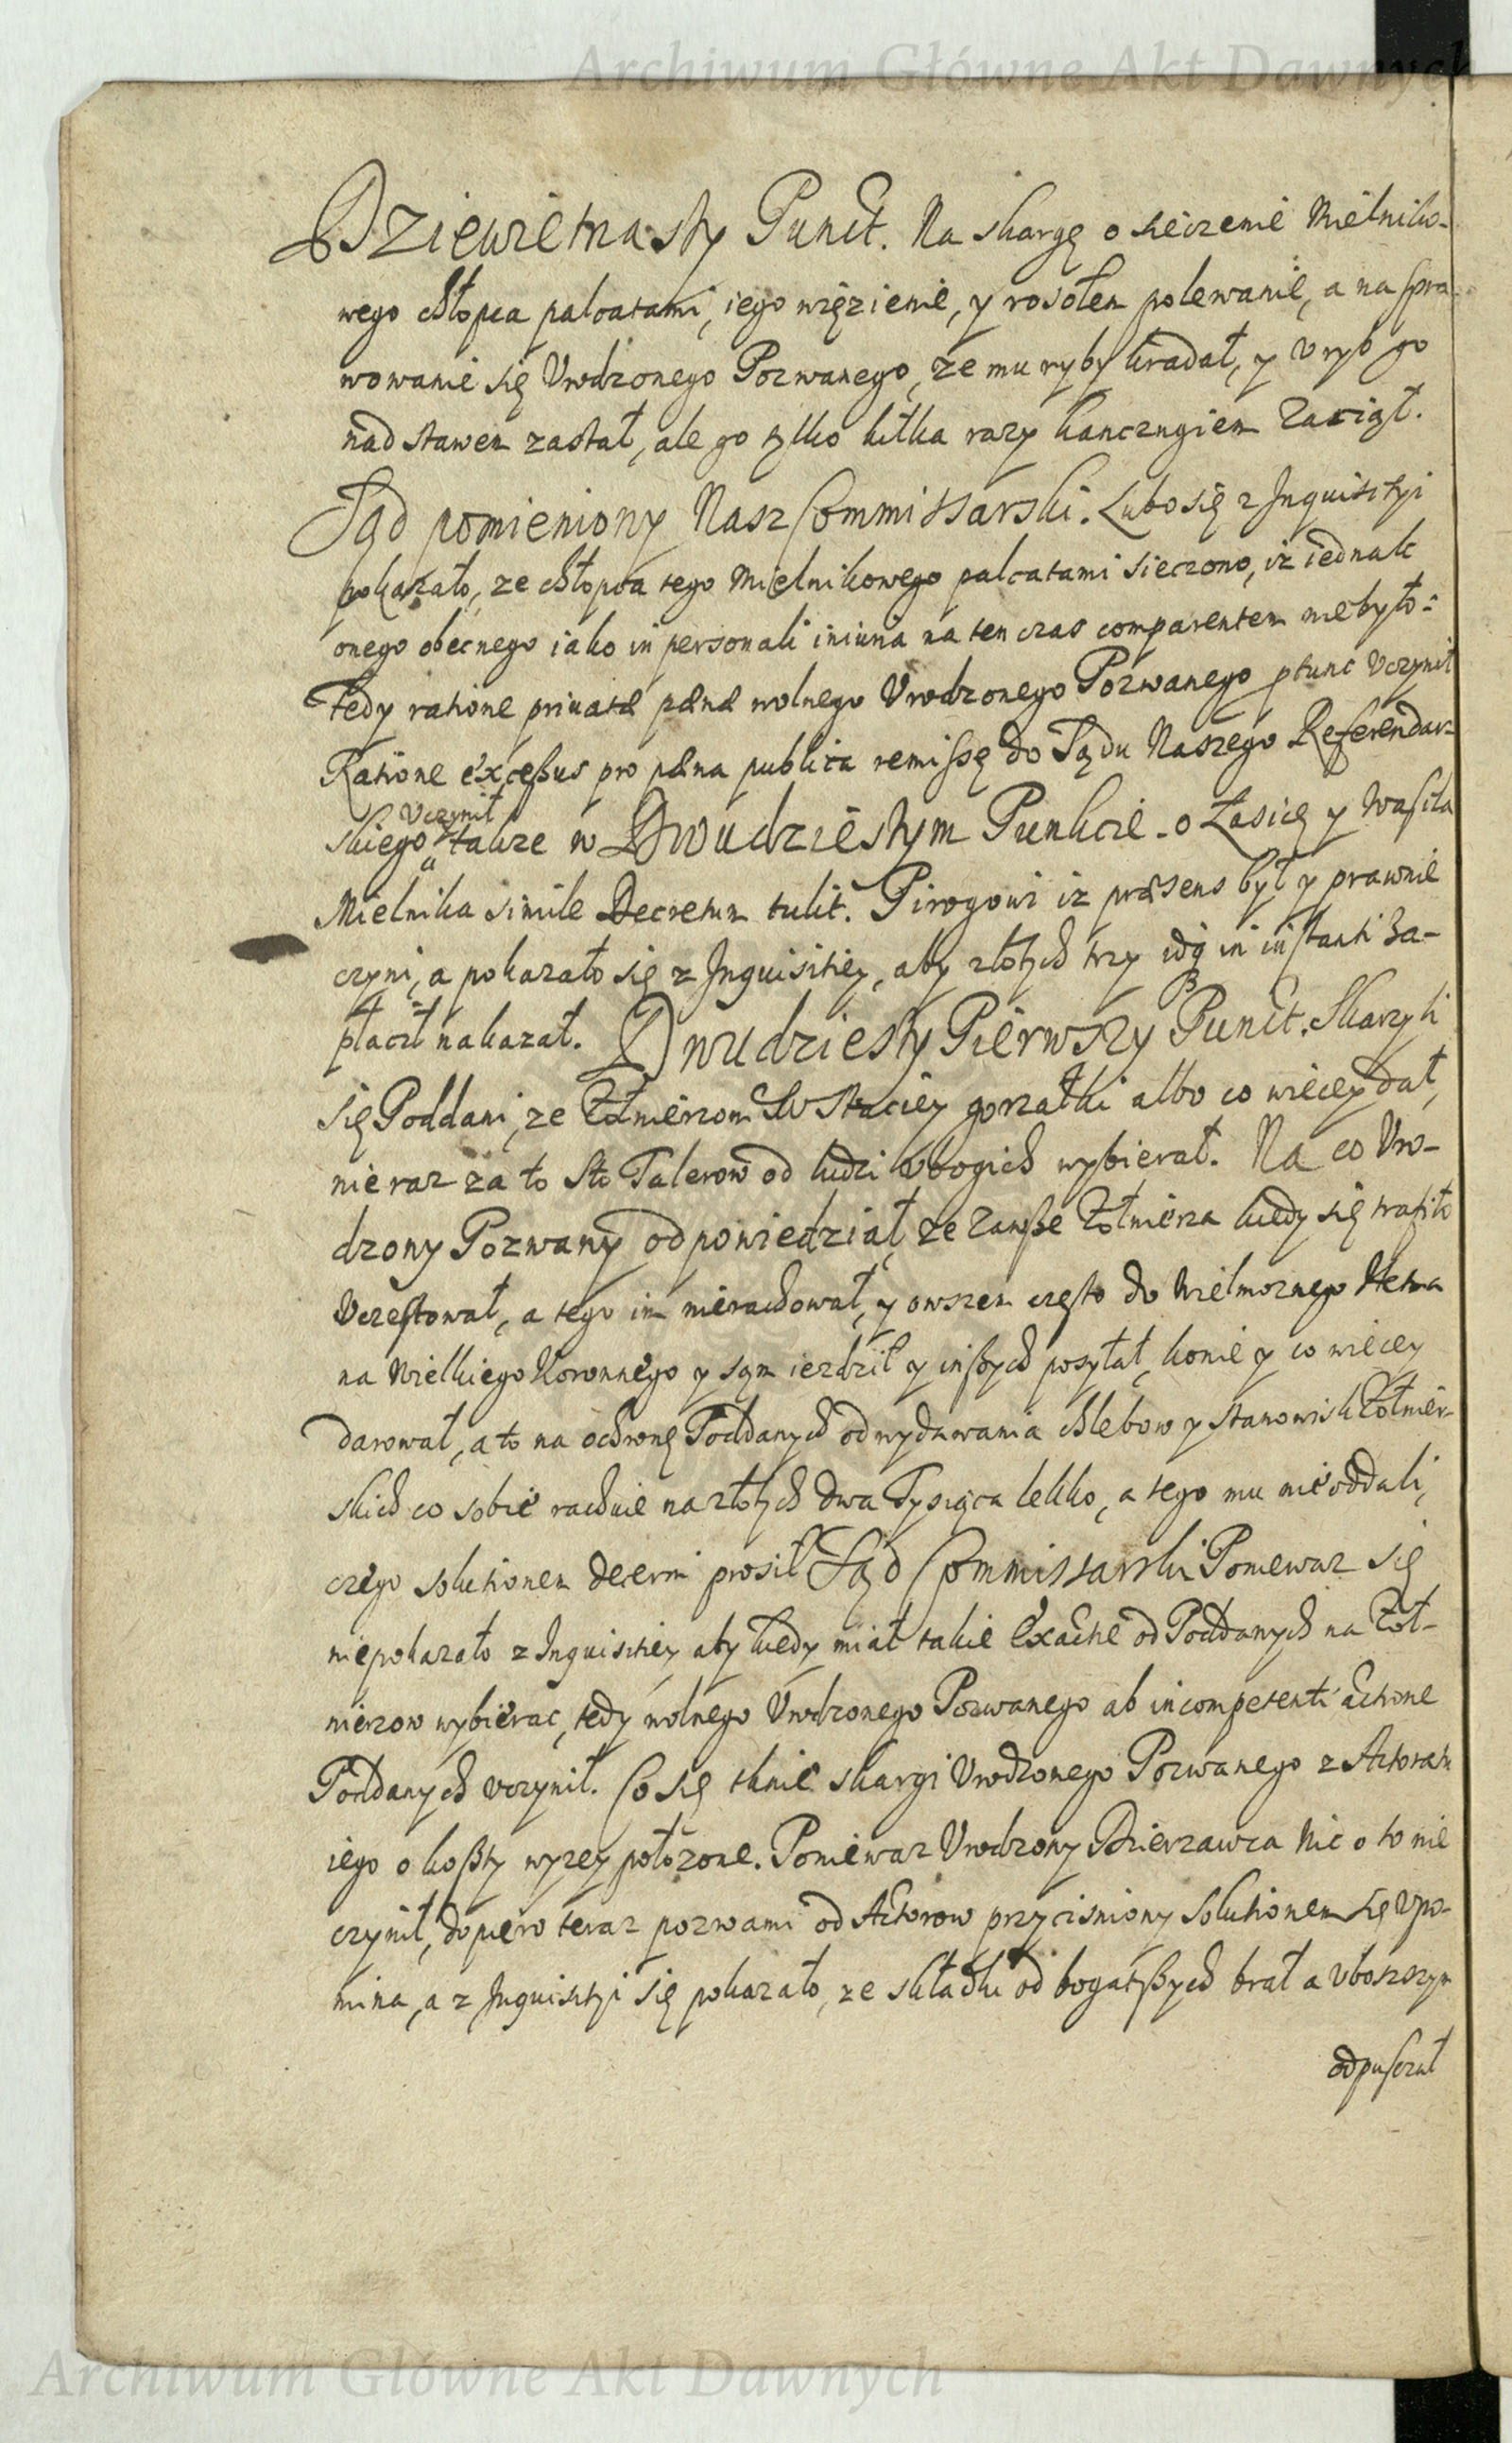 Archiwum Główne Akt Dawnych
Dziewietnasty Punct. Na skargę o sieczenie Mielniko-
wego chłopca palcatami, iego więzienie, y rosołem polewanie, a na spra-
wowanie się Vrodzonego Pozwanego, ze mu ryby kradał, y v ryb go
nad stawem zastał, ale go tylko kilka razy kanczugiem zaciął.
Sąd pomieniony Nasz Commissarski. Lubo się z Inquisityi
pokazało, ze chłopca tego Mielnikowego palcatami sieczono, iz iednak
onego obecnego iako in personali iniuria na ten czas comparentem niebyło:
Tedy ratione priuatæ pænæ wolnego Vrodzonego Pozwanego ptunc Vczynił
Ratione excessus pro pæna publica remissę do Sądu Naszego Referendar-
skiego Vczynił takze w Dwudziestym Punkcie o Łasicę y Wasila
Mielnika simile Decretum tulit. Pirogowi iz præsens był y prawnie
czyni, a pokazało się z Inquisitiey, aby złotych trzy idq in instanti za-
płacił nakazał. Dwudziesty Pierwszy Punct. Skarzyli
się Poddani, ze Zołnierzom w Staciey gorzałki albo co wiecey dał,
nie raz za to Sto Talerow od ludzi vbogich wybierał. Na co Vro-
dzony Pozwany odpowiedział, ze zawsze Zołnierza kiedy się trafiło
Vczestował, a tego im nierachował, y owszem często do Wielmoznego Hetma
na Wielkiego Koronnego y sąm iezdził y inszych posyłał, konie y co wiecey
darował, a to na ochronę Poddanych od wydawania chlebow y stanowisk Zołnier-
skich co sobie rachuie na złotych dwa Tysiąca lekko, a tego mu nie oddali,
czego solutionem decerni prosił Sąd Commissarski Poniewaz się
niepokazało z Inquisitiey aby kiedy miał takie Exactie od Poddanych na Zoł-
nierzow wybierac, tedy wolnego Vrodzonego Pozwanego ab incompetenti actione
Poddanych vczynił. Co się tknie skargi Vrodzonego Pozwanego z Actorami
iego o koszty wyzey połozone. Poniewaz Vrodzony Dzierzawca nic o to nie
czynił, dopiero teraz pozwami od Actorow przycisniony solutionem się vpo-
mina, a z Inquisityi się pokazało, ze składki od bogatszych brał a vboszszym
odpuszczał
Archiwum Główne Akt Dawnych